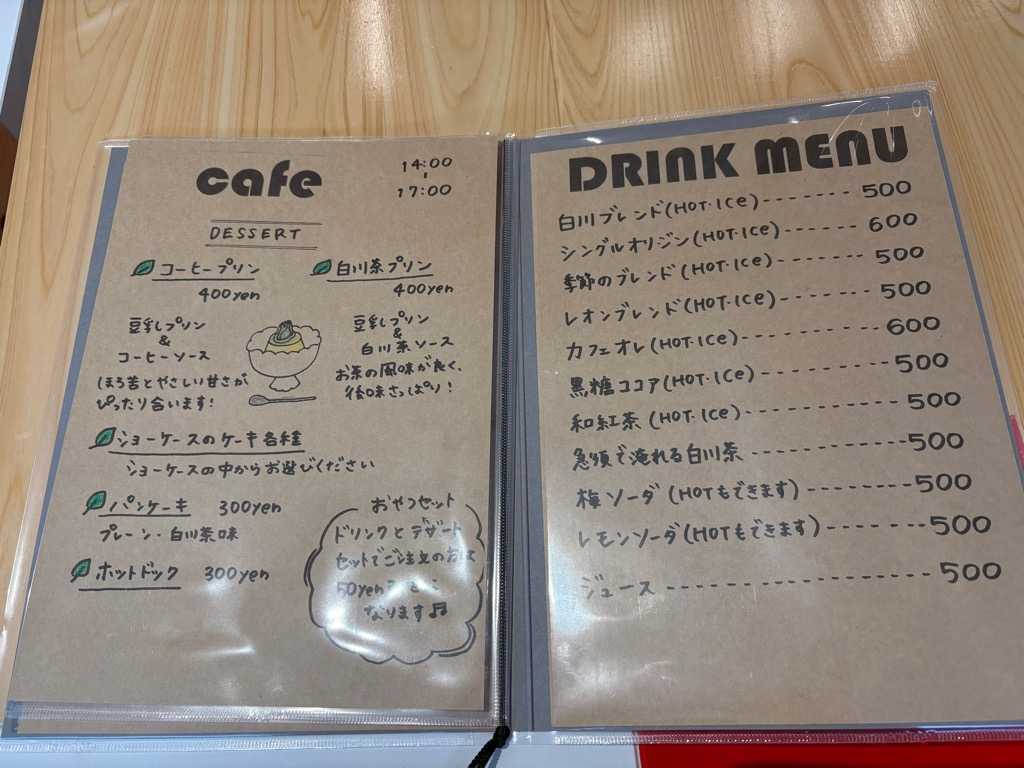 cafe
14:00
17:00
DESSERT
コーヒープリン
400yen
白川茶プリン
400yen
豆乳プリン
&
コーヒーソース
ほろ苦とやさしい甘さが
ぴったり合います!
豆乳プリン
&
白川茶ソース
お茶の風味が良く、
後味さっぱり!
ショーケースのケーキ各種
ショーケースの中からお選びください
パンケーキ 300yen
プレーン・白川茶味
ホットドック 300yen
おやつセット
ドリンクとデザート
セットでご注文の方は
50yen
なります♬
DRINK MENU
白川ブレンド(HOT・ICe)------ 500
シングルオリジン(HOT・ICe)------ 600
季節のブレンド(HOT・ICe)------- 500
レオンブレンド(HOT・ICe)------- 500
カフェオレ(HOT・ICe)--------- 600
黒糖ココア(HOT・ICe)--------- 500
和紅茶(HOT・ICe)----------- 500
急須で淹れる白川茶----------- 500
梅ソーダ(HOTもできます)-------- 500
レモンソーダ(HOTもできます)------- 500
ジュース------------------ 500